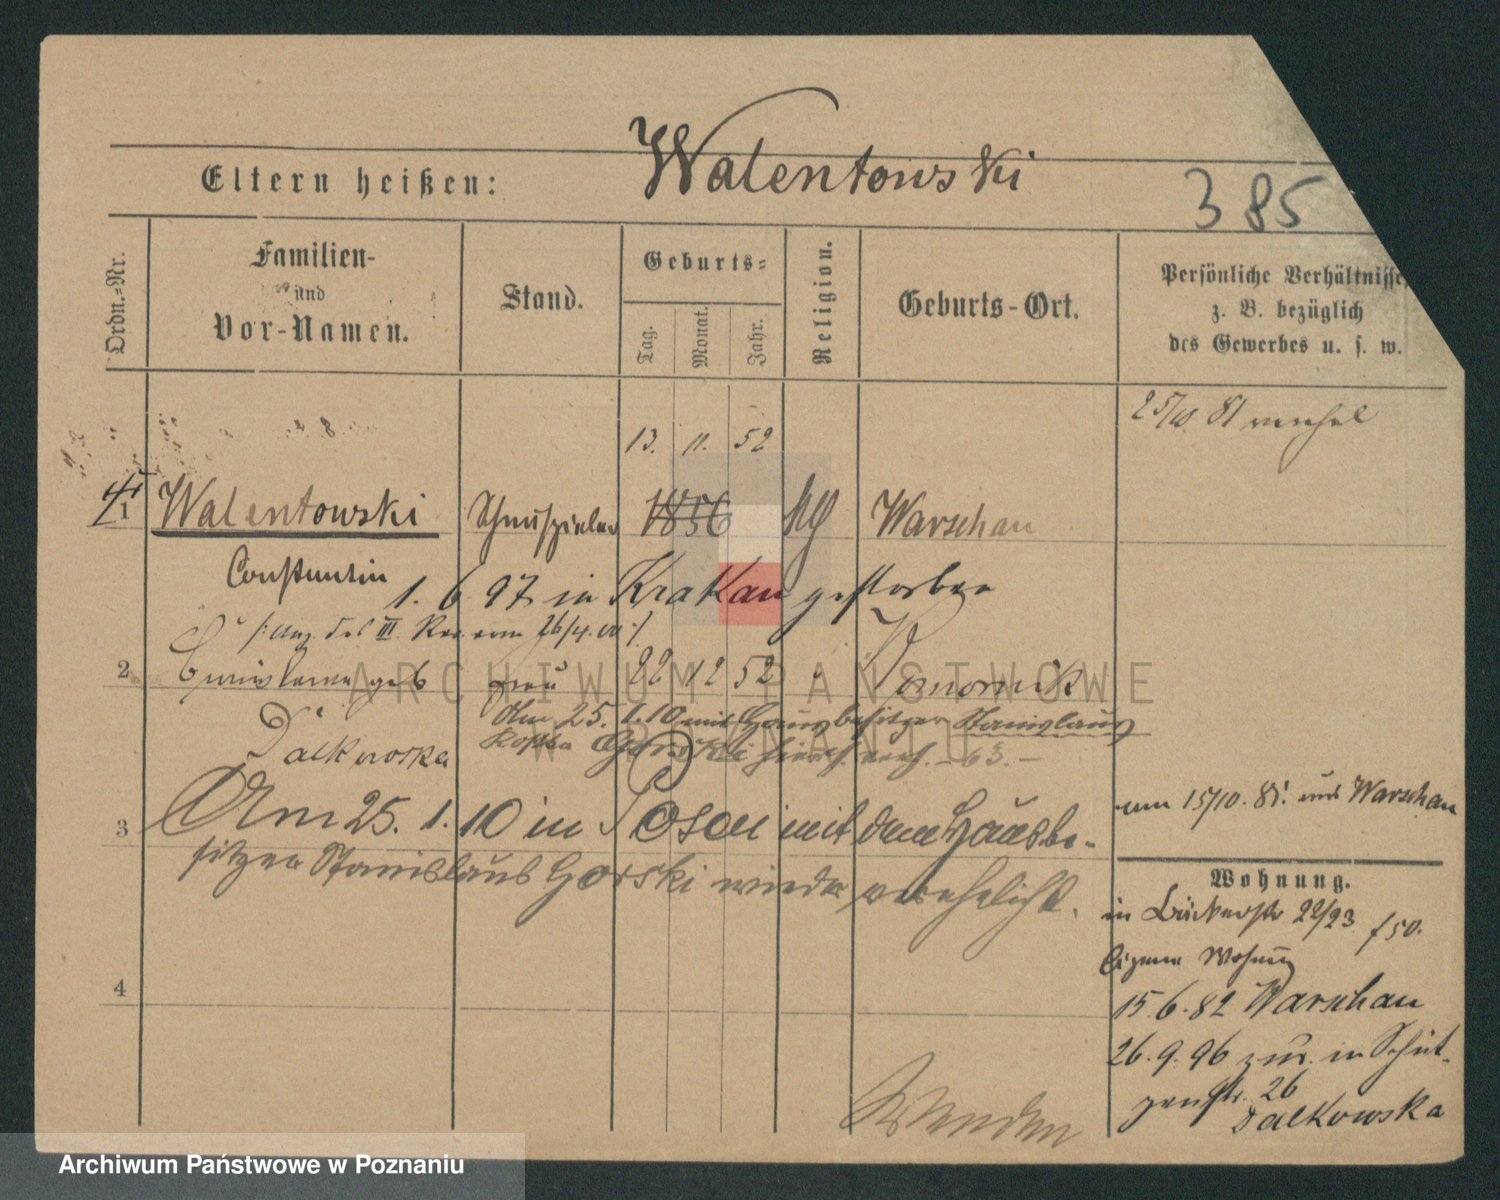 Walentowski
Eltern heißen:
385
Ordn.=Nr.
Familien-
und
Vor-Namen.
Stand.
Geburts=
Tag.
Monat.
Jahr.
Religion.
Geburts-Ort.
Persönliche Verhältnisse,
z. B. bezüglich
des Gewerbes u. s. w.
25/10 81
13. 11. 52
1 Walentowski Schauspieler 1856 Warschau
Constantin
1. 6. 97 in Krakau gestorben
III. 26/4. 00
2 geb Frau 22 12 52
Dalkowska
Am 25. 1. 10 mit Hausbesitzer Stanislaus
Kostka Gorski
um 15/10. 81. Warschau
3 Am 25. 1. 10 in Posen mit dem Hausbe-
sitzer Stanislaus Gorski wieder verehelicht.
Wohnung.
in 22/23 f 50.
Eigene Wohnung
15. 6. 82 Warschau
4
26. 9. 96 zur. in Schüt-
zenstr. 26
Dalkowska
Wenden
ARCHIWUM PAŃSTWOWE
W POZNANIU
Archiwum Państwowe w Poznaniu